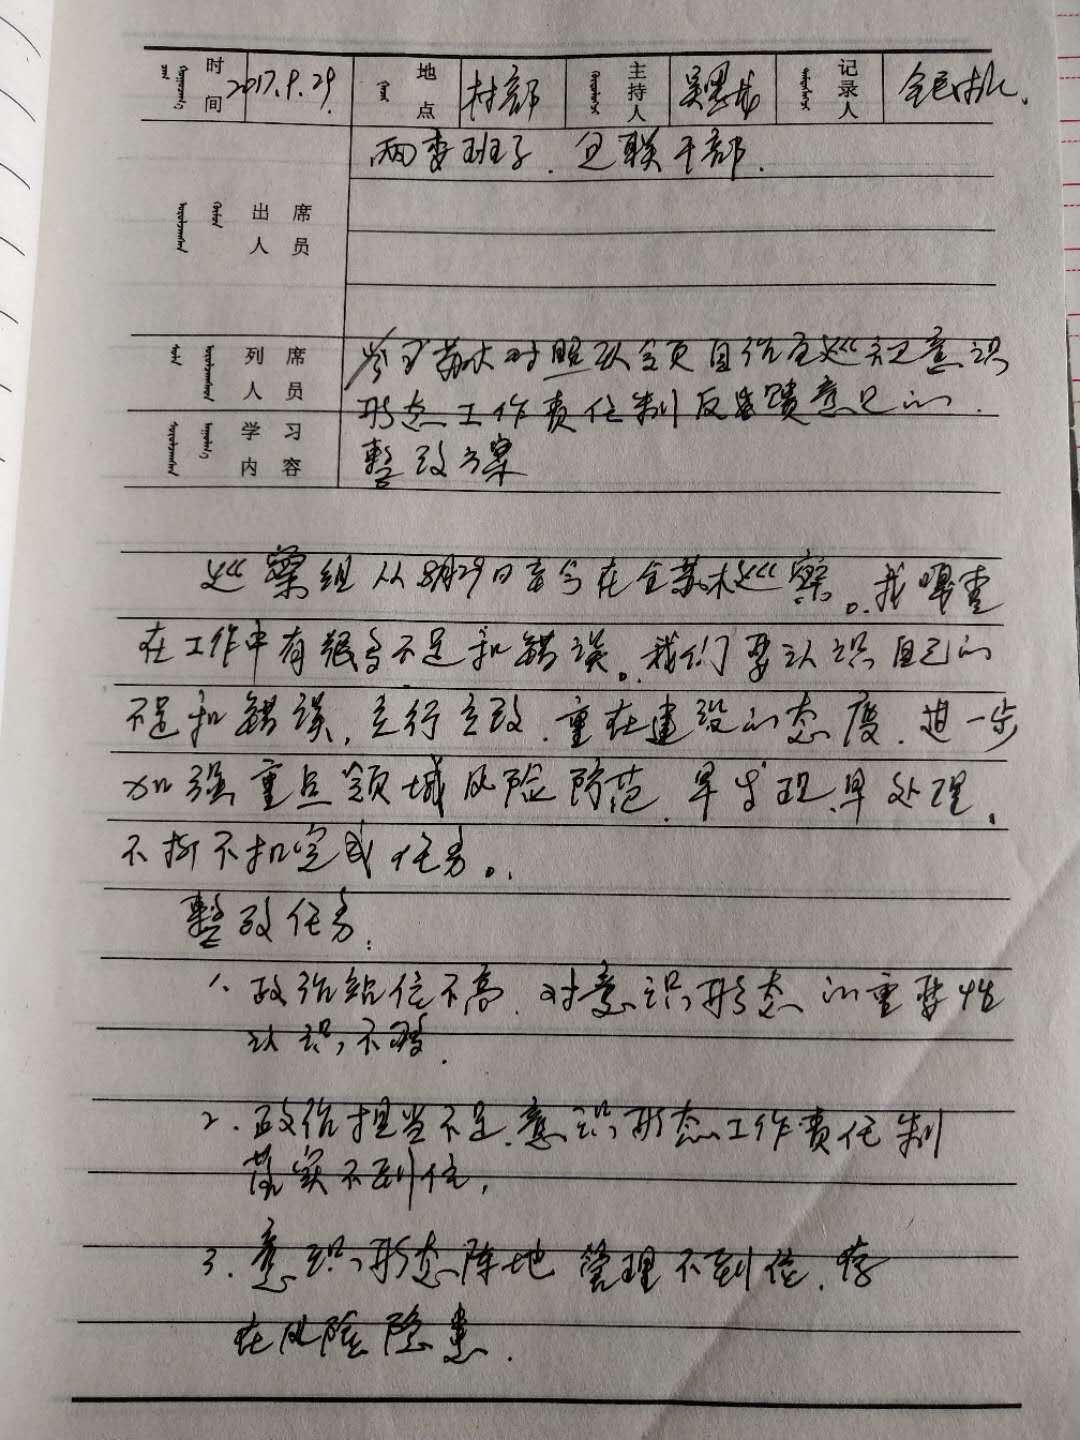 时间 2017.9.29. 地点 村部 主持人 记录人
两委班子、包联干部.
出席
人员
列席 对照 自治区巡视意识
人员 形态工作责任制反馈意见的
学习
内容 整改方案
巡察组从8月29日至今在全苏木巡察。我嘎查
在工作中有很多不足和错误。我们要认识自己的
不足和错误,立行立改,重在建设的态度,进一步
加强重点领域风险防范,早发现、早处理、
不折不扣完成任务。
整改任务:
1、政治站位不高,对意识形态的重要性
认识不够.
2.政治担当不足,意识形态工作责任制
落实不到位,
3.意识形态阵地管理不到位,存
在风险隐患.